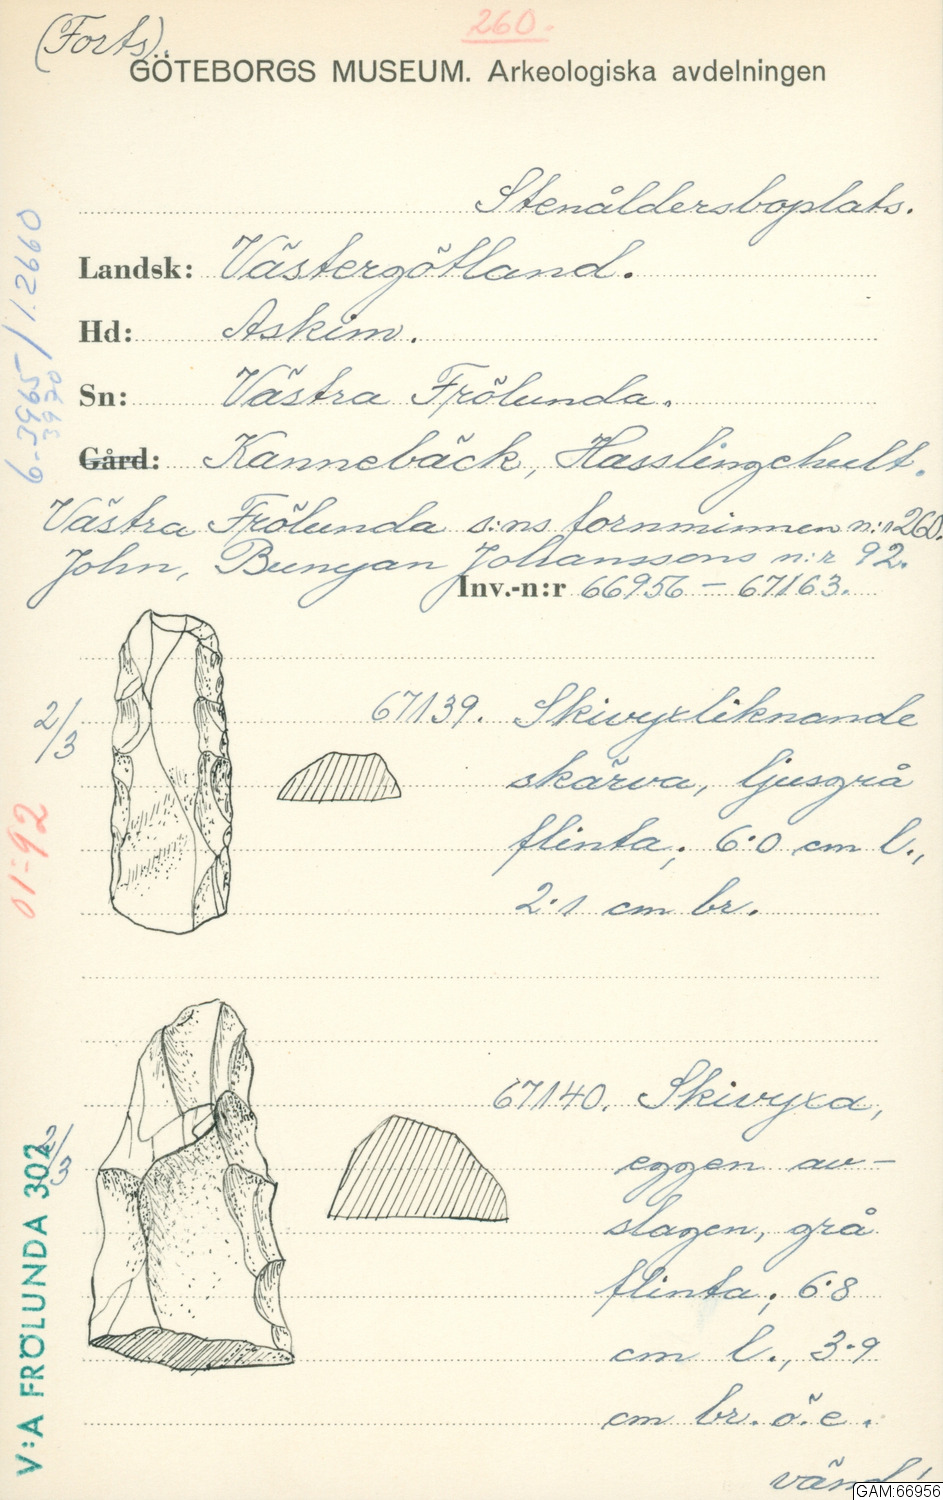 (Forts).
260.
GÖTEBORGS MUSEUM. Arkeologiska avdelningen
Stenåldersboplats.
Landsk: Västergötland.
Hd: Askim.
Sn: Västra Frölunda.
Gård: Kannebäck, Hasslingehult.
Västra Frölunda s:ns fornminnen n:r 260.
John, Bunyan Johanssons n:r 92.
Inv.-n:r 66956 – 67163.
6-3965/1.2660
3970
2/3
67139. Skivyxliknande
skärva, ljusgrå
flinta; 6·0 cm l.,
2·1 cm br.
01-92
2/3
67140. Skivyxa,
eggen av-
slagen, grå
flinta; 6·8
cm l., 3·9
cm br. ö. e.
vänd!
V:A FRÖLUNDA 302
GAM:66956